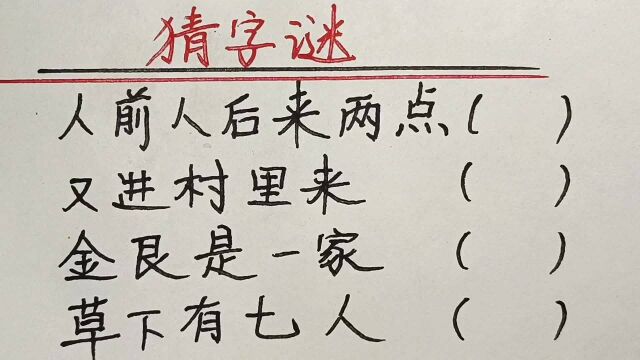 猜字谜
人前人后来两点( )
又进村里来 ( )
金艮是一家 ( )
草下有七人 ( )